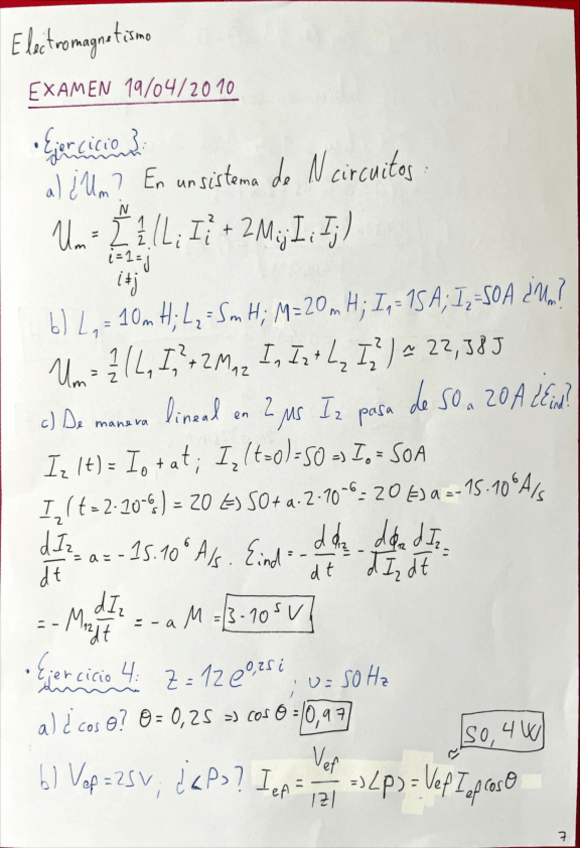 Electromagnetismo
EXAMEN 19/04/2010
• Ejercicio 3:
a) ¿Um? En un sistema de N circuitos:
Um = ∑_{i=1=j, i≠j}^{N} 1/2 (Li Ii² + 2Mij Ii Ij)
b) L1 = 10mH; L2 = 5mH; M=20mH; I1=15A; I2=50A ¿Um?
Um = 1/2 (L1 I1² + 2M12 I1 I2 + L2 I2²) ≃ 22,38J
c) De manera lineal en 2 μs I2 pasa de 50 a 20A ¿Ɛind?
I2(t) = I0 + at; I2(t=0)=50 ⇒ I0 = 50A
I2(t=2·10⁻⁶s) = 20 ⇔ 50+a·2·10⁻⁶ = 20 ⇔ a = -15·10⁶ A/s
dI2/dt = a = -15·10⁶ A/s. Ɛind = - dϕ12/dt = - dϕ12/dI2 dI2/dt =
= - M12 dI2/dt = - a M = 3·10⁵ V
• Ejercicio 4: Z = 12e^{0,25i}; υ = 50Hz
a) ¿cosθ? θ = 0,25 ⇒ cosθ = 0,97
b) Vef = 25V; ¿<P>? Ief = Vef/|Z| ⇒ <P> = Vef Ief cosθ ≃ 50,4W
7